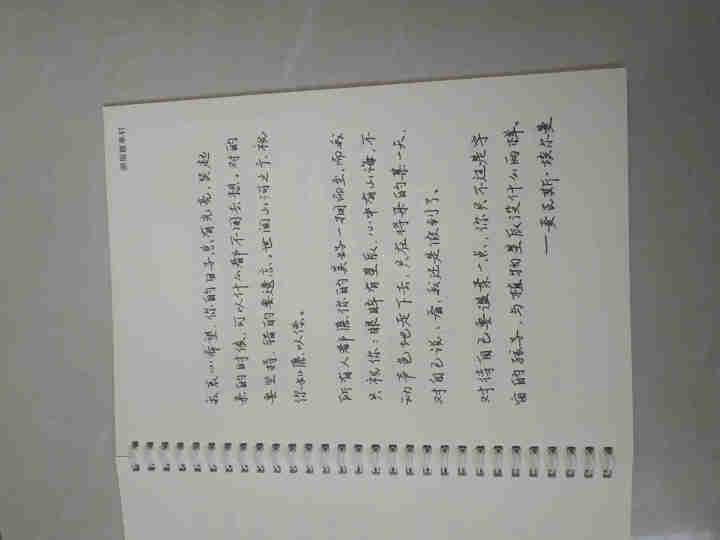 我衷心希望，你的日子总有光亮，笑起
来的时候，可以什么都不用去想。对的
要坚持，错的要遗忘。世间山河之广，祝
你如愿以偿。
所有人都愿你的美好一拥而上，而我
只祝你：眼眸有星辰，心中有山海，不
动声色地走下去，只在将来的某一天，
对自己说：看，我还是做到了。
对待自己要温柔一点，你只不过是宇
宙的孩子，与植物星辰没什么两样。
——麦克斯·埃尔曼